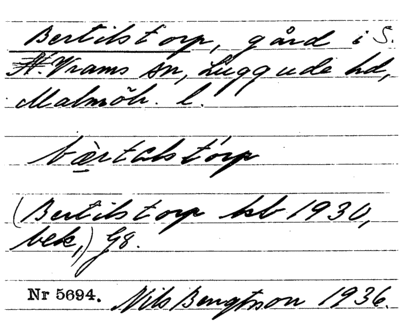 Bertilstorp, gård i S.
N. Vrams sn, Luggude hd,
Malmöh. l.
bèrtəlstórp
(Bertilstorp hsb 1930,
bek,) G8.
Nr 5694. Nils Bengtsson 1936.